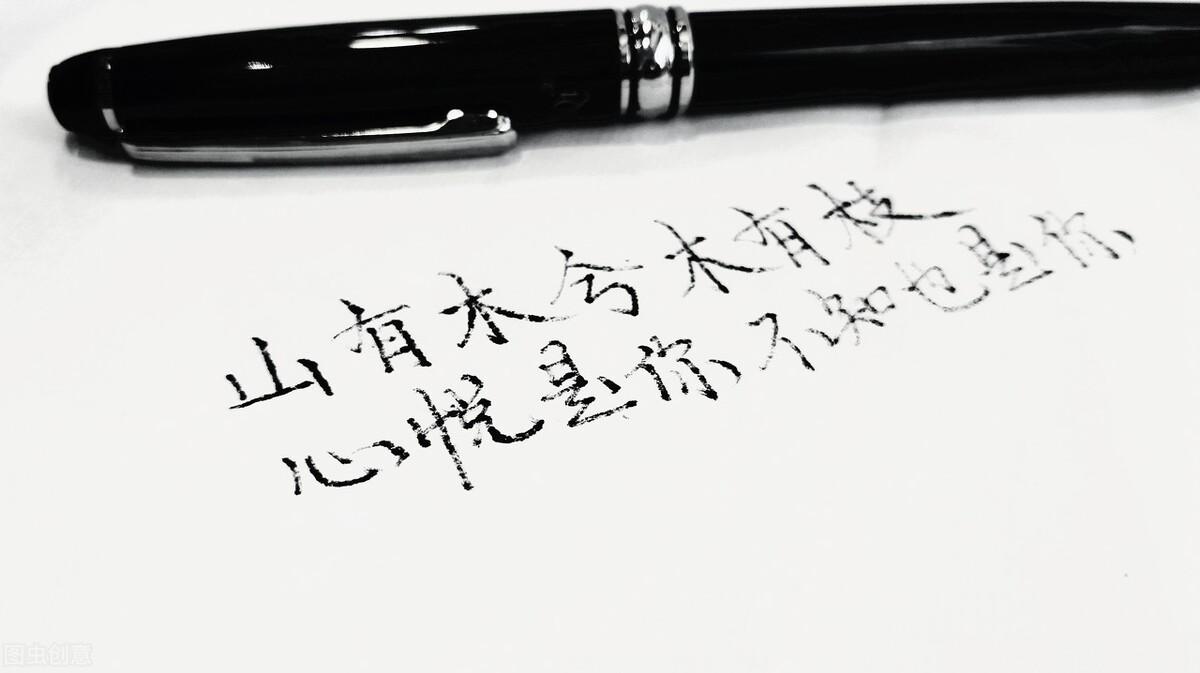 山有木兮木有枝
心悦是你不知也是你
图虫创意